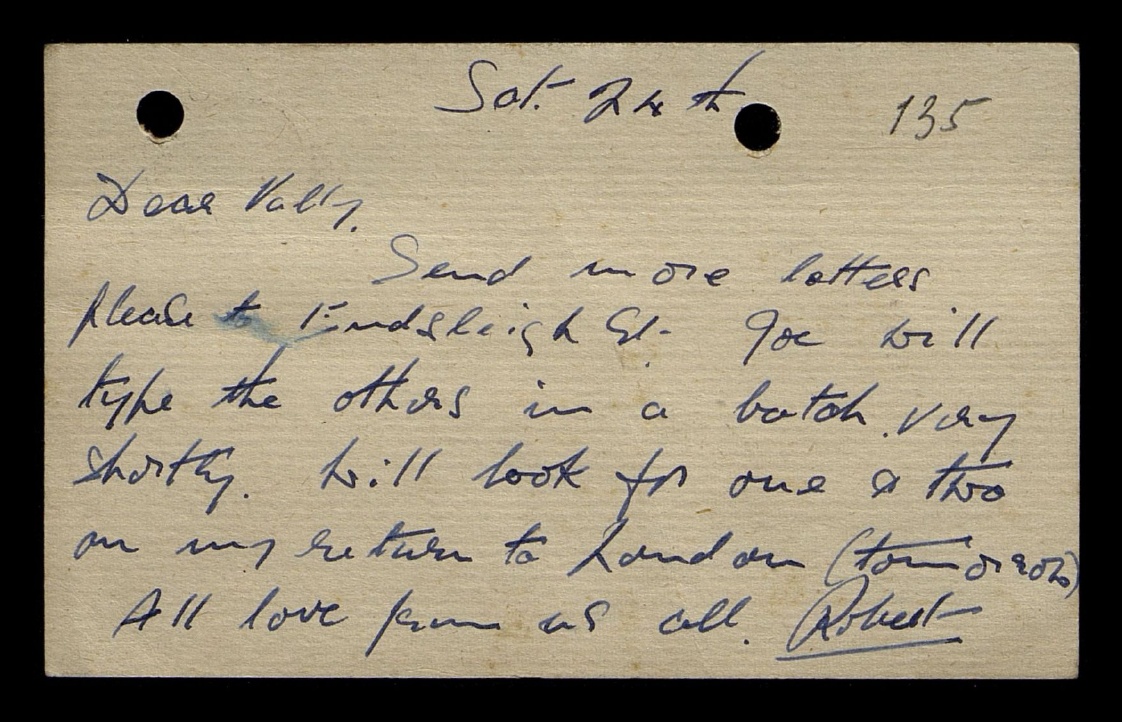 Sat. 24th 135
Dear Vally,
Send more letters
please to Endsleigh St. Joe will
type the others in a batch very
shortly. Will look for one & two
on my return to London (tomorrow)
All love from us all. Robert